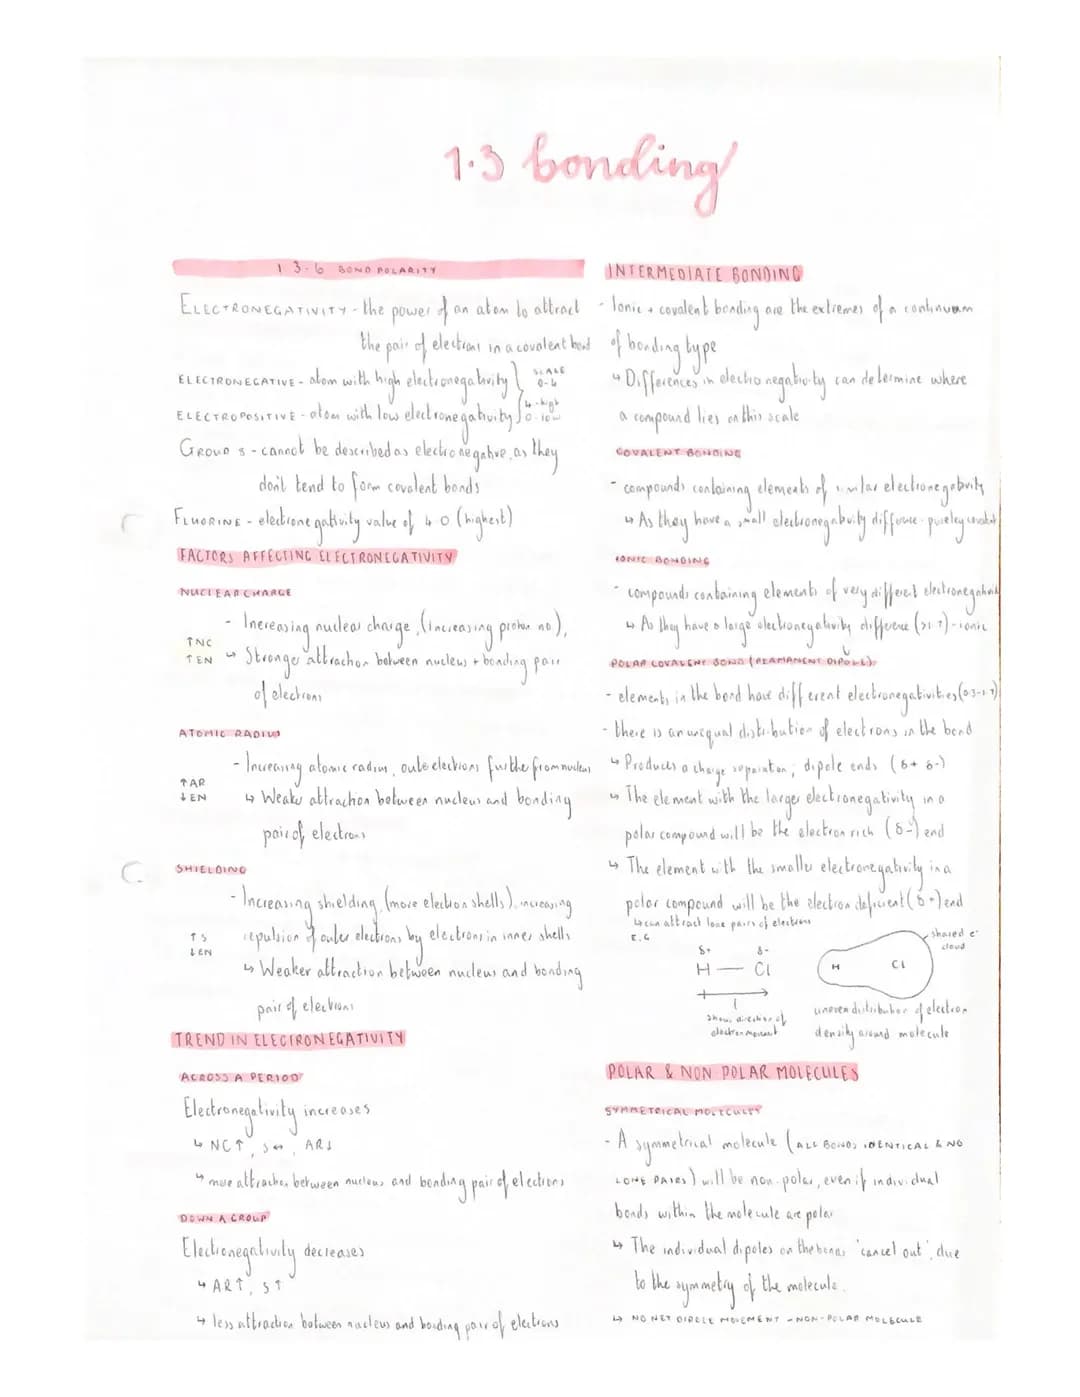 1.3 bonding
1.3.6 BOND POLARITY
ELECTRONEGATIVITY - the power of an atom to attract
the pair of electrons in a covalent bond
ELECTRONEGATIVE - atom with high electronegativity
ELECTROPOSITIVE - atom with low electronegativity
SCALE
0-4
4-high
0-low
GROUP 8 - cannot be described as electronegative, as they
don't tend to form covalent bonds
FLUORINE - electronegativity value of 4.0 (highest)
FACTORS AFFECTING ELECTRONEGATIVITY
NUCLEAR CHARGE
- Increasing nuclear charge, (increasing proton no),
↑NC
↑EN
↳ Stronger attraction between nucleus + bonding pair
of electrons
ATOMIC RADIUS
- Increasing atomic radius, outer electrons further from nucleus
↑AR
↓EN
↳ Weaker attraction between nucleus and bonding
pair of electrons
SHIELDING
- Increasing shielding, (more electron shells), increasing
repulsion of outer electrons by electrons in inner shells
↑S
↓EN
↳ Weaker attraction between nucleus and bonding
pair of electrons
TREND IN ELECTRONEGATIVITY
ACROSS A PERIOD
Electronegativity increases
↳ NC↑, S↔, AR↓
↳ more attraction between nucleus and bonding pair of electrons
DOWN A GROUP
Electronegativity decreases
↳ AR↑, S↑
↳ less attraction between nucleus and bonding pair of electrons
INTERMEDIATE BONDING
- Ionic + covalent bonding are the extremes of a continuum
of bonding type
↳ Differences in electronegativity can determine where
a compound lies on this scale
COVALENT BONDING
- compounds containing elements of similar electronegativity
↳ As they have a small electronegativity difference - pureley covalent
IONIC BONDING
- compounds containing elements of very different electronegativity
↳ As they have a large electronegativity difference (>1.7) - ionic
POLAR COVALENT BOND (PERMANENT DIPOLE)
- elements in the bond have different electronegativities (0.3-1.7)
- there is an unequal distribution of electrons in the bond
↳ Produces a charge separation, dipole ends (δ+ δ-)
↳ The element with the larger electronegativity in a
polar compound will be the electron rich (δ-) end
↳ The element with the smaller electronegativity in a
polar compound will be the electron deficient (δ+) end
↳ can attract lone pairs of electrons
E.G
δ+ δ-
H — Cl
shows direction of
electron movement
H Cl
shared e⁻
cloud
uneven distribution of electron
density around molecule
POLAR & NON POLAR MOLECULES
SYMMETRICAL MOLECULES
- A symmetrical molecule (ALL BONDS IDENTICAL & NO
LONE PAIRS) will be non-polar, even if individual
bonds within the molecule are polar
↳ The individual dipoles on the bonds 'cancel out', due
to the symmetry of the molecule.
↳ NO NET DIPOLE MOVEMENT - NON-POLAR MOLECULE